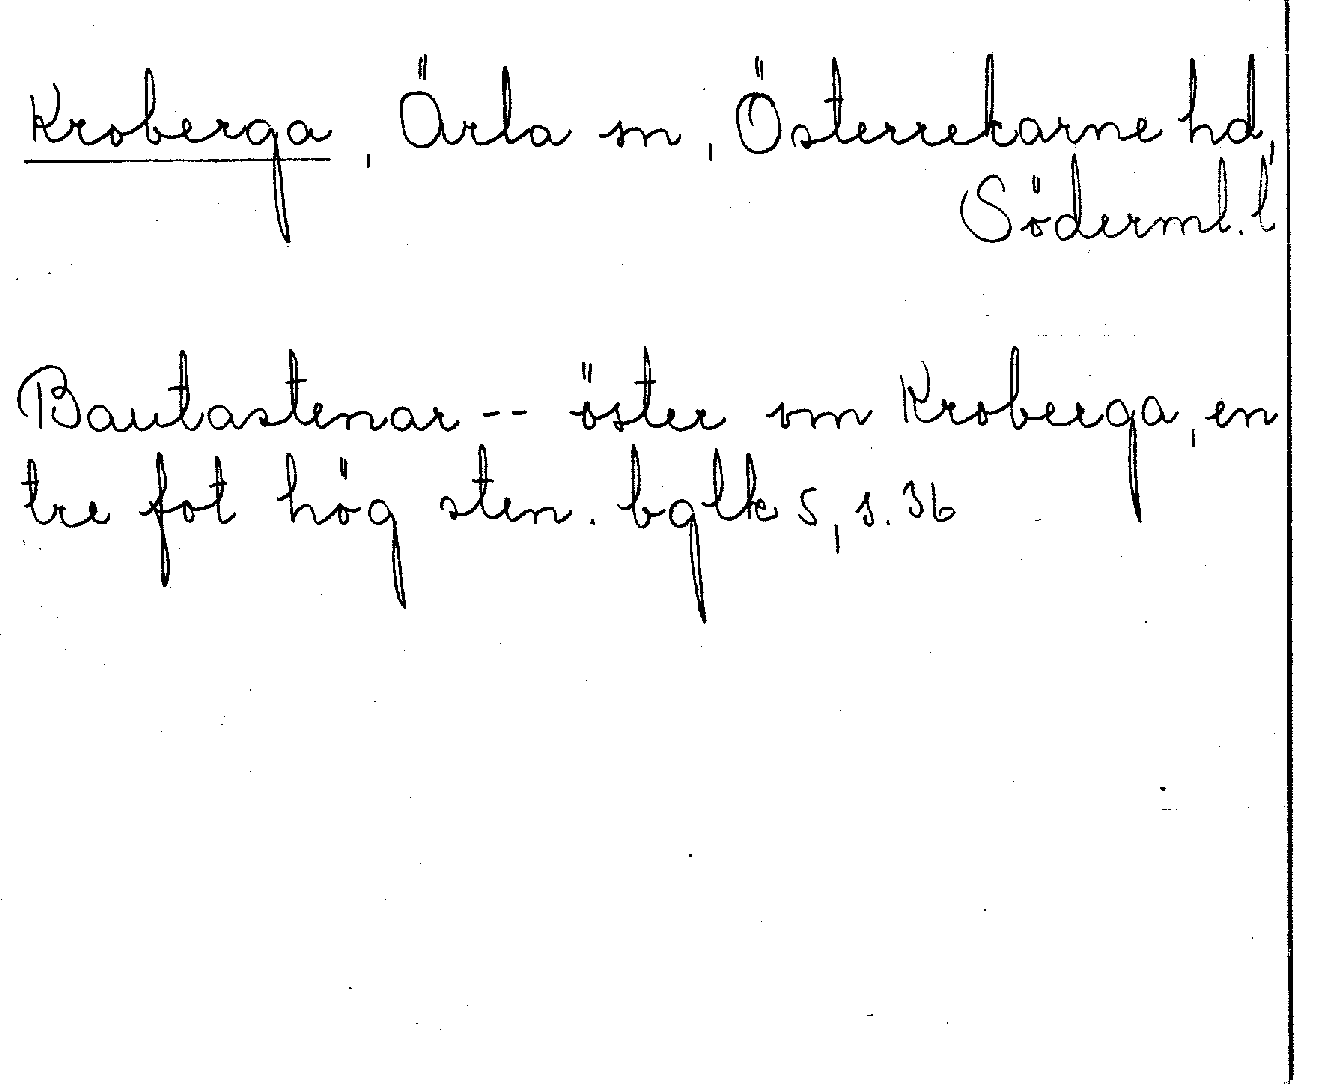 Kroberga, Ärla sn, Österrekarne hd,
Söderml. l
Bautastenar -- öster om Kroberga, en
tre fot hög sten. bglk 5, s. 36